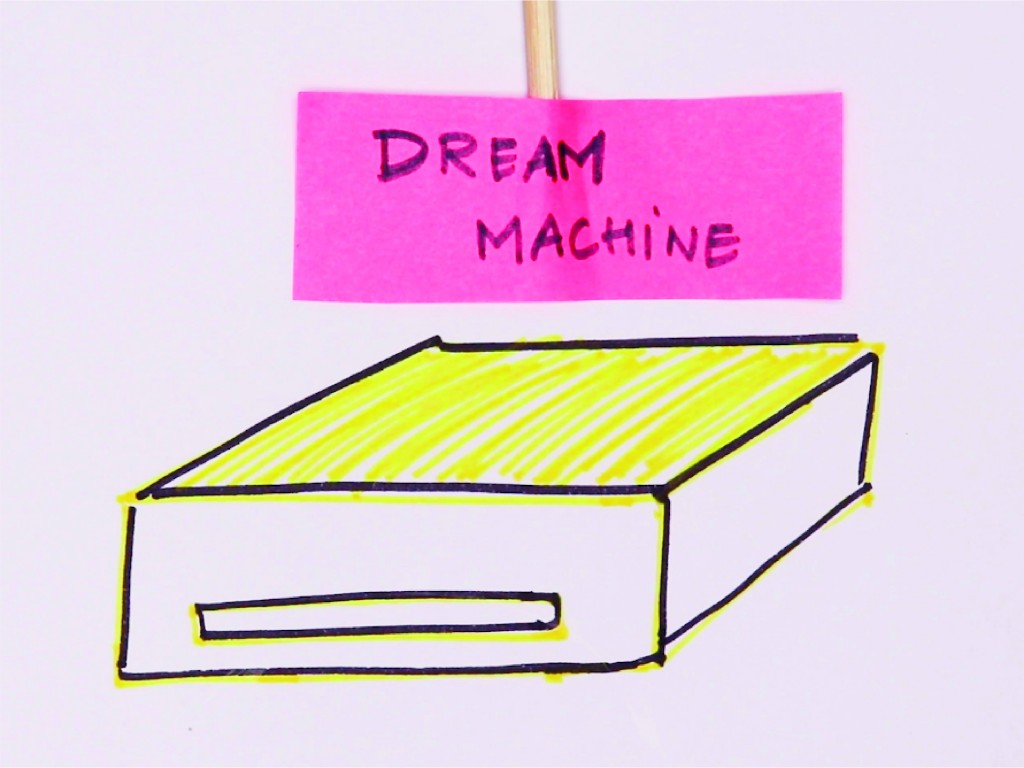 DREAM
MACHiNE